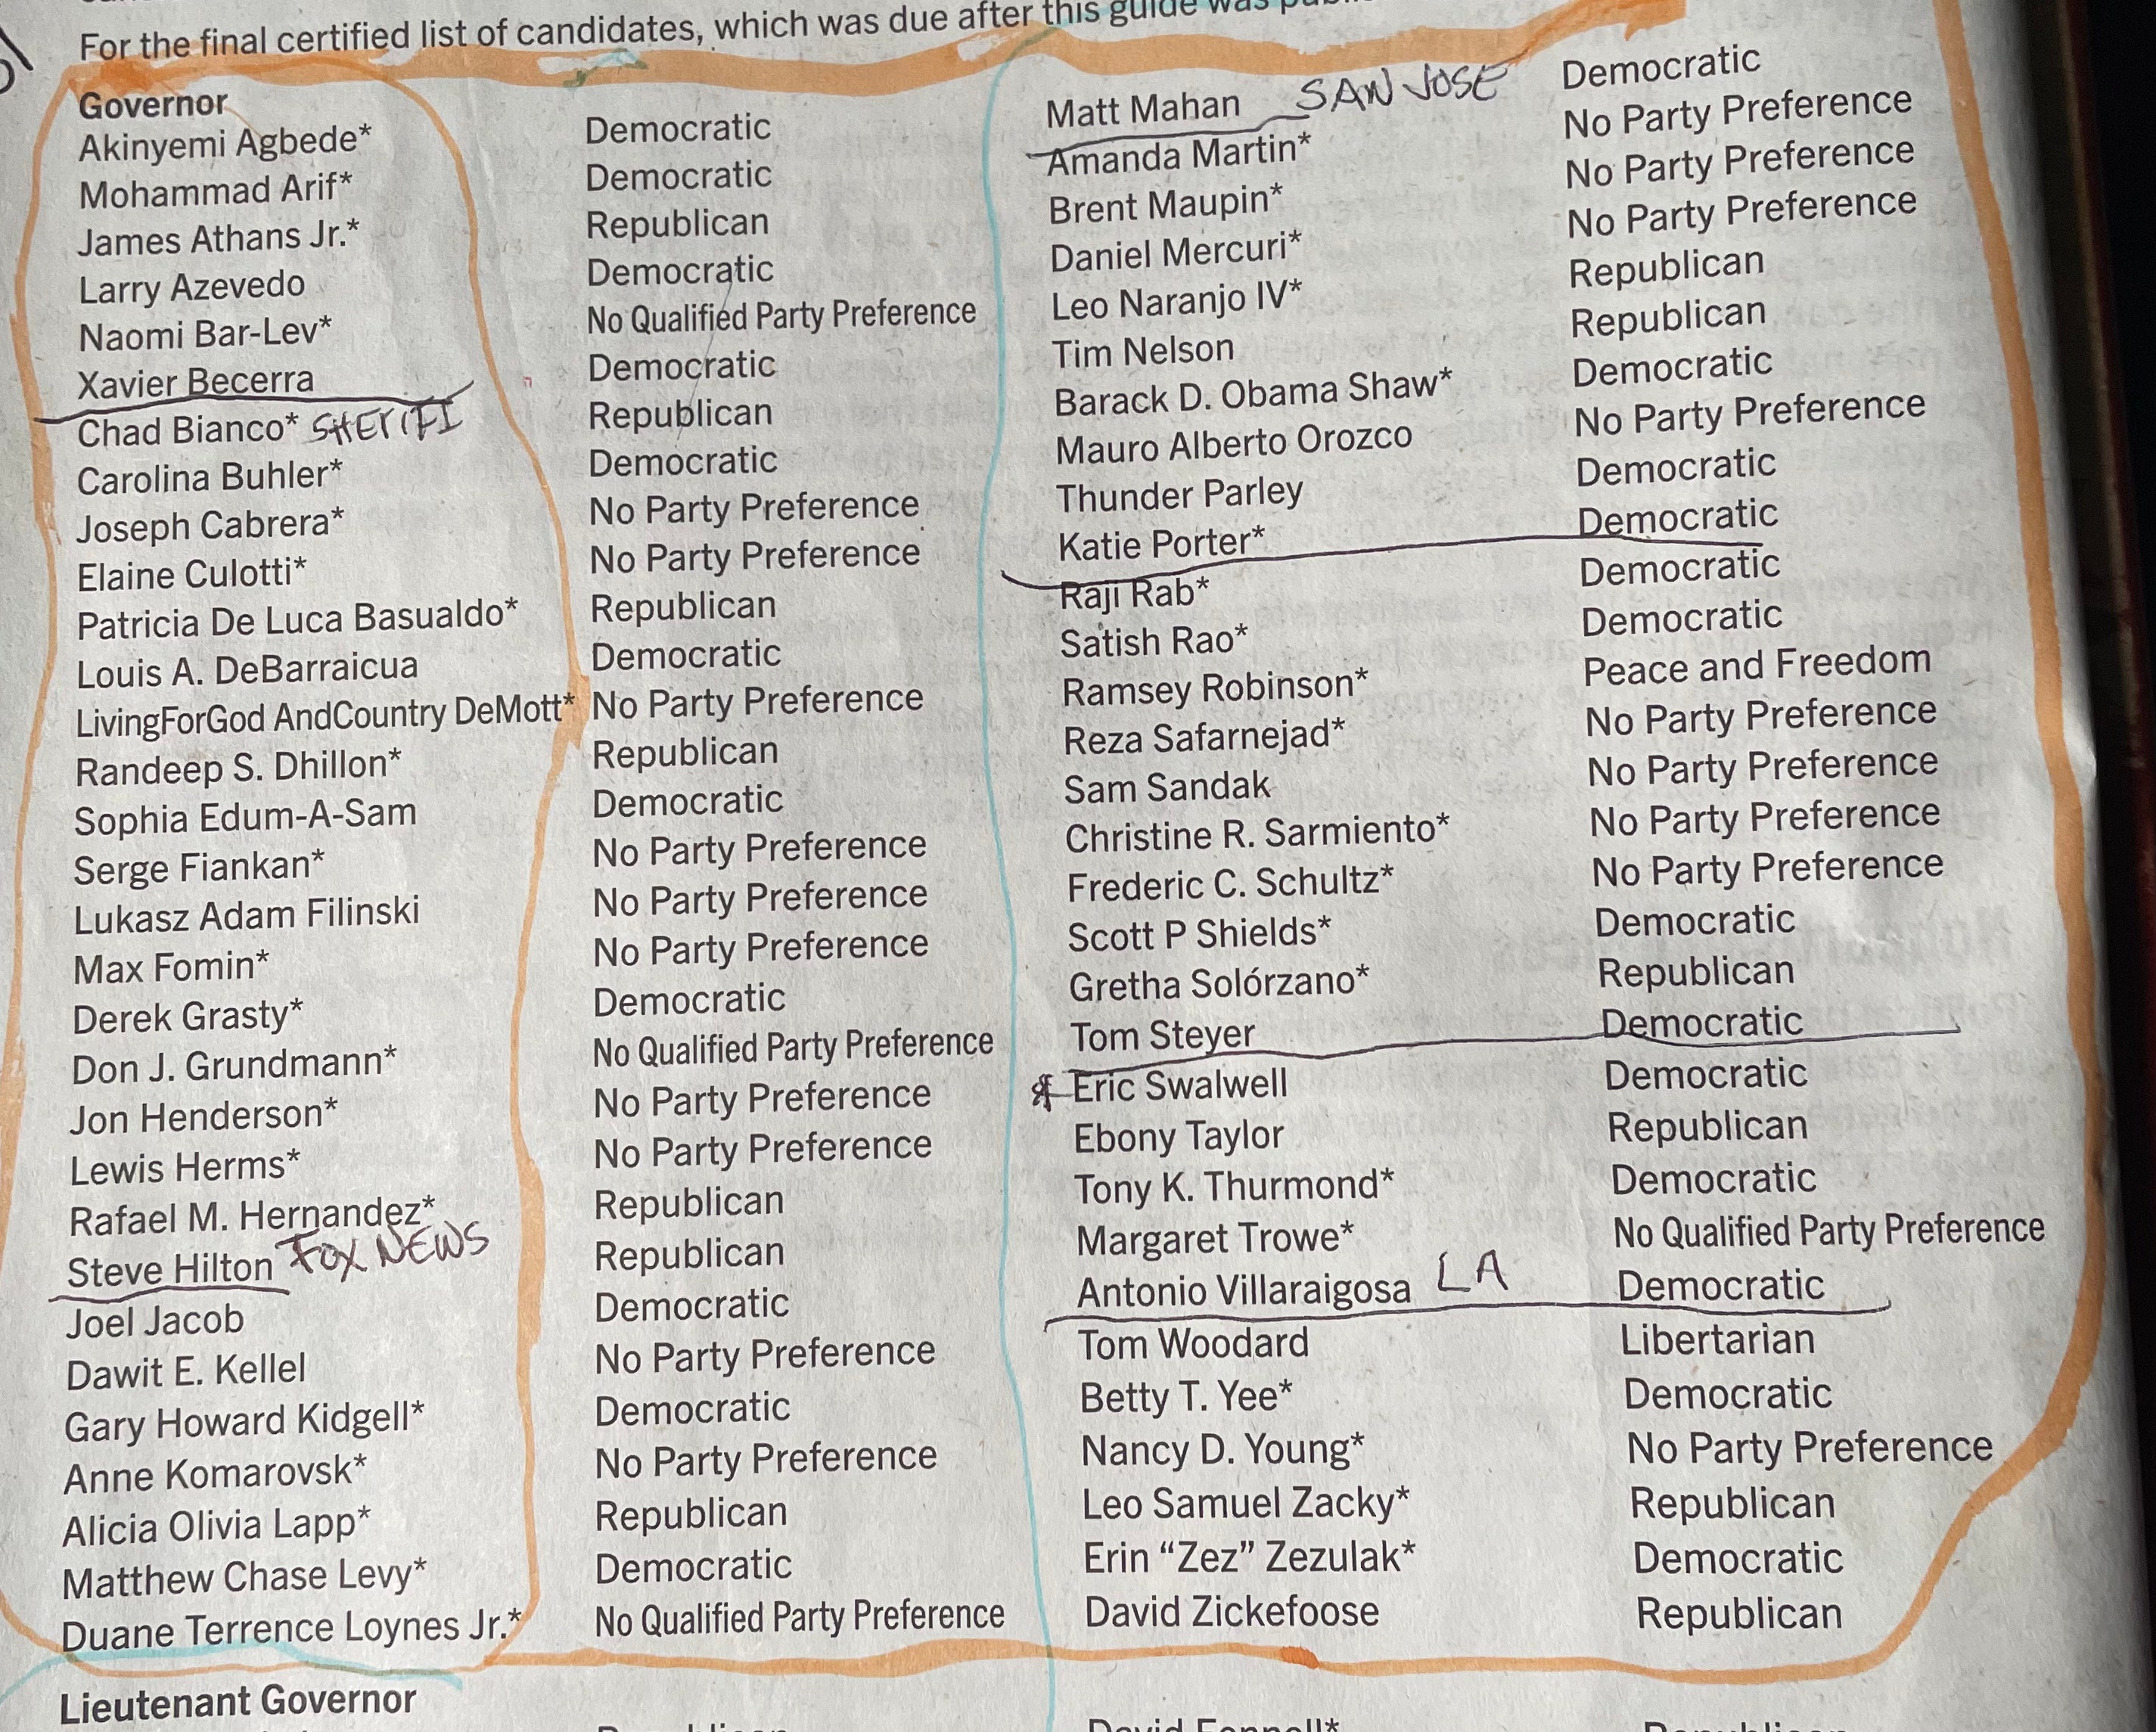 For the final certified list of candidates, which was due after this guide was
Governor
Akinyemi Agbede* Democratic
Mohammad Arif* Democratic
James Athans Jr.* Republican
Larry Azevedo Democratic
Naomi Bar-Lev* No Qualified Party Preference
Xavier Becerra Democratic
Chad Bianco* Republican
Carolina Buhler* Democratic
Joseph Cabrera* No Party Preference
Elaine Culotti* No Party Preference
Patricia De Luca Basualdo* Republican
Louis A. DeBarraicua Democratic
LivingForGod AndCountry DeMott* No Party Preference
Randeep S. Dhillon* Republican
Sophia Edum-A-Sam Democratic
Serge Fiankan* No Party Preference
Lukasz Adam Filinski No Party Preference
Max Fomin* No Party Preference
Derek Grasty* Democratic
Don J. Grundmann* No Qualified Party Preference
Jon Henderson* No Party Preference
Lewis Herms* No Party Preference
Rafael M. Hernandez* Republican
Steve Hilton FOX NEWS Republican
Joel Jacob Democratic
Dawit E. Kellel No Party Preference
Gary Howard Kidgell* Democratic
Anne Komarovsk* No Party Preference
Alicia Olivia Lapp* Republican
Matthew Chase Levy* Democratic
Duane Terrence Loynes Jr.* No Qualified Party Preference
Matt Mahan SAN JOSE Democratic
Amanda Martin* No Party Preference
Brent Maupin* No Party Preference
Daniel Mercuri* No Party Preference
Leo Naranjo IV* Republican
Tim Nelson Republican
Barack D. Obama Shaw* Democratic
Mauro Alberto Orozco No Party Preference
Thunder Parley Democratic
Katie Porter* Democratic
Raji Rab* Democratic
Satish Rao* Democratic
Ramsey Robinson* Peace and Freedom
Reza Safarnejad* No Party Preference
Sam Sandak No Party Preference
Christine R. Sarmiento* No Party Preference
Frederic C. Schultz* No Party Preference
Scott P Shields* Democratic
Gretha Solórzano* Republican
Tom Steyer Democratic
Eric Swalwell Democratic
Ebony Taylor Republican
Tony K. Thurmond* Democratic
Margaret Trowe* No Qualified Party Preference
Antonio Villaraigosa LA Democratic
Tom Woodard Libertarian
Betty T. Yee* Democratic
Nancy D. Young* No Party Preference
Leo Samuel Zacky* Republican
Erin “Zez” Zezulak* Democratic
David Zickefoose Republican
Lieutenant Governor